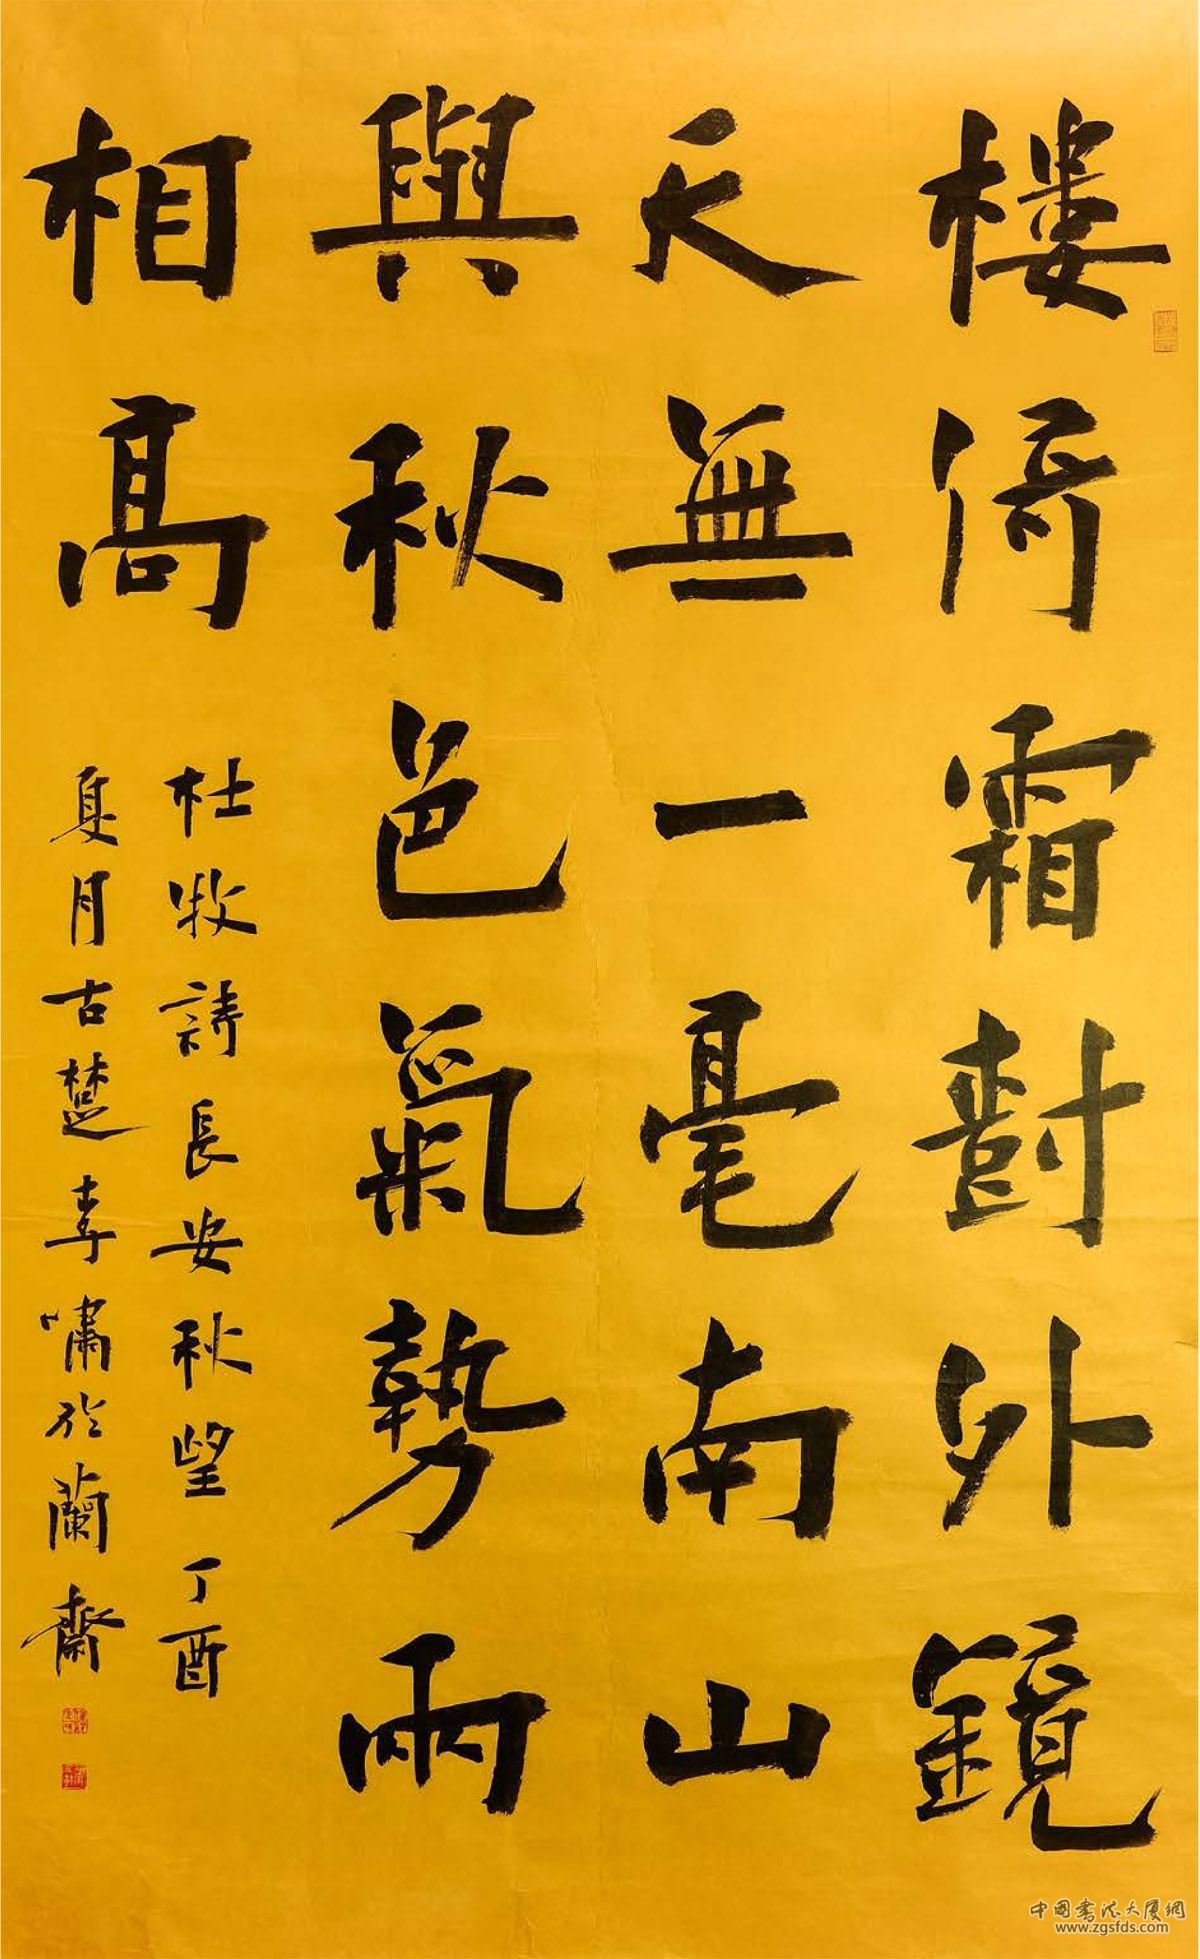 樓倚霜樹外鏡
天無一毫南山
與秋色氣勢兩
相高
杜牧詩長安秋望丁酉
夏月古楚李嘯於蘭齋
中国书法大厦網
www.zgsfds.com